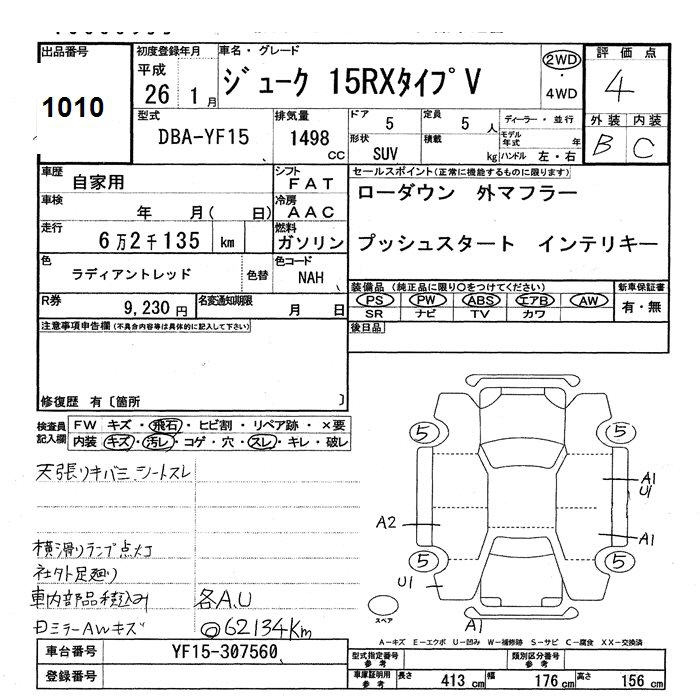 出品番号
1010
初度登録年月
平成
26 1月
車名・グレード
ジューク 15RXタイプV
2WD
・
4WD
評価点
4
外装 内装
B C
型式
DBA-YF15
排気量
1498
CC
ドア
5
定員
5人
形状
SUV
積載
kg
ディーラー・並行
モデル
年式 年
ハンドル 左・右
車歴
自家用
シフト
FAT
車検
年 月( 日)
冷房
AAC
走行
6万2千135 km
燃料
ガソリン
色
ラディアントレッド
色替
色コード
NAH
R券
9,230円
名変通知期限
月 日
セールスポイント(正常に機能するものに限ります)
ローダウン 外マフラー
プッシュスタート インテリキー
装備品(純正品に限り○をつけてください)
PS PW ABS エアB AW
SR ナビ TV カワ
新車保証書
有・無
後日品
注意事項申告欄(不具合内容等は具体的に記入して下さい)
修復歴 有〔箇所 〕
検査員
記入欄
FW キズ・飛石・ヒビ割・リペア跡・×要
内装 キズ・汚レ・コゲ・穴・スレ・キレ・破レ
天張リキバミ シートスレ
横滑りランプ点灯
社外足廻り
車内部品積込み 各A.U
日ミラーAWキズ ◎62134Km
5 5
A1
U1
A2
A1
5 5
U1
スペア
A1
A－キズ E－エクボ U－凹み W－補修跡 S－サビ C－腐食 XX－交換済
車台番号 YF15-307560
登録番号
型式指定番号
参考
類別区分番号
参考
車庫証明用
参考
長さ 413 cm 幅 176 cm 高さ 156 cm